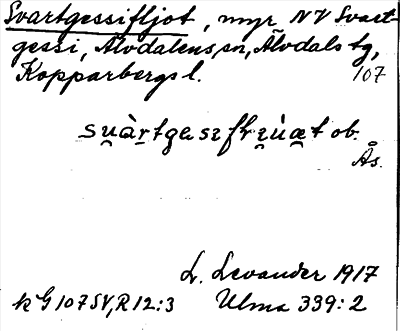 Svartgessifljot, myr NV Svart-
gessi, Älvdalens sn, Älvdals tg,
Kopparbergs l. 107
ob.
Ås.
L. Levander 1917
k G 107 SV, R 12:3 Ulma 339:2